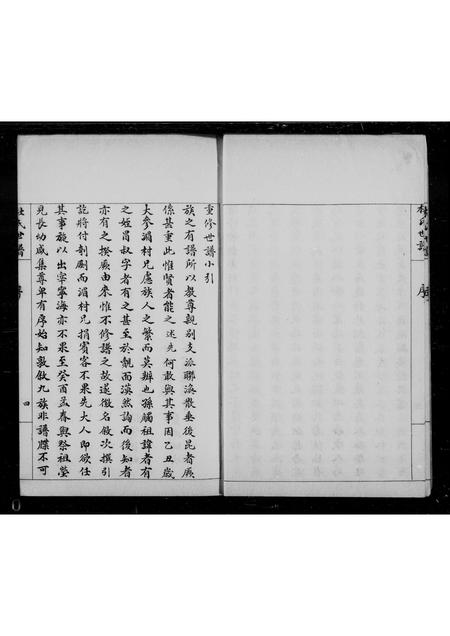 杜氏世譜
序
重修世譜小引
族之有譜所以敦尊親別支派聯渙散垂後昆者厥
係甚重此惟賢者能之述先何敢與其事因乙丑歲
大參湄村兄慮族人之繁而莫辨也孫觸祖諱者有
之姪冒叔字者有之甚至於覿面漠然詢而後知者
亦有之揆厥由來惟不修譜之故遂徵名啟次撰引
訖將付剞劂而湄村兄捐賓客不果先大人即欲任
其事旋以出宰寧海亦不果至癸酉孟春與祭祖塋
見長幼咸集尊卑有序始知敦敘九族非譜牒不可
杜氏世譜
序
四